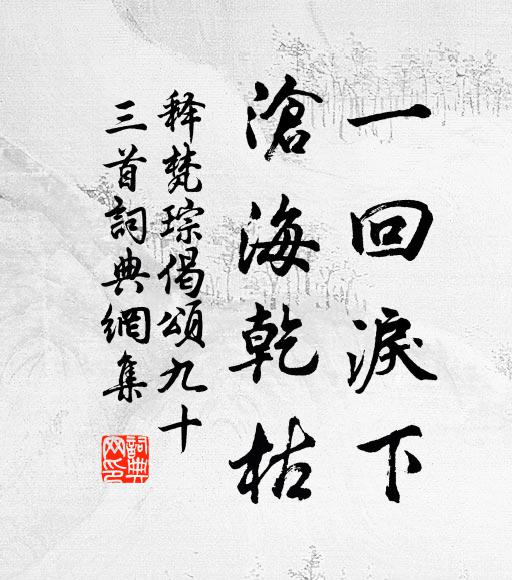 一回淚下
滄海乾枯
释梵琮偈頌九十
三首詞典網集
詞典
网印